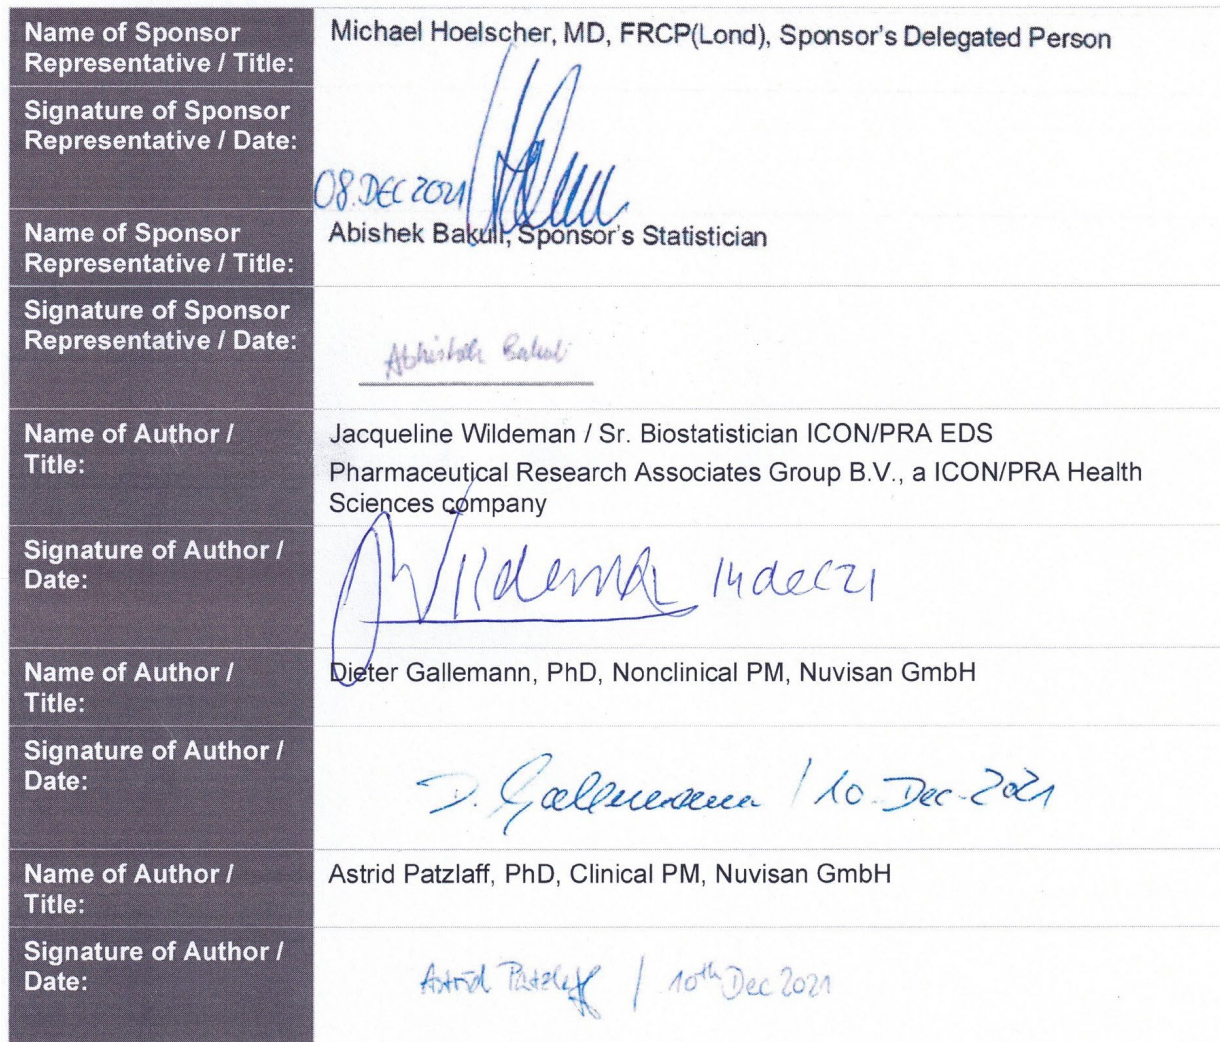 Name of Sponsor
Representative / Title:
Michael Hoelscher, MD, FRCP(Lond), Sponsor's Delegated Person
Signature of Sponsor
Representative / Date:
08.DEC 2021
Name of Sponsor
Representative / Title:
Abishek Bakuli, Sponsor's Statistician
Signature of Sponsor
Representative / Date:
Abhishek Bakuli
Name of Author /
Title:
Jacqueline Wildeman / Sr. Biostatistician ICON/PRA EDS
Pharmaceutical Research Associates Group B.V., a ICON/PRA Health
Sciences company
Signature of Author /
Date:
JWildeman 14dec21
Name of Author /
Title:
Dieter Gallemann, PhD, Nonclinical PM, Nuvisan GmbH
Signature of Author /
Date:
D. Gallemann / 10-Dec-2021
Name of Author /
Title:
Astrid Patzlaff, PhD, Clinical PM, Nuvisan GmbH
Signature of Author /
Date:
Astrid Patzlaff / 10th Dec 2021